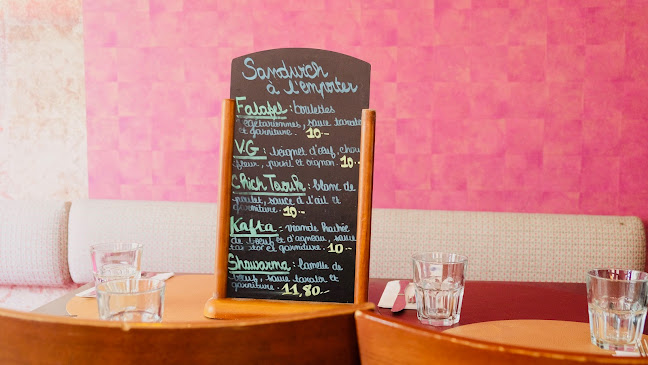 Sandwich
à l'emporter
Falafel : boulettes
végétariennes, sauce tarator
et garniture. 10.-
V.G : beignet d'œuf, chou
fleur, persil et oignon 10.-
Chich Taouk : blanc de
poulet, sauce à l'ail et
garniture 10.-
Kafta : viande hachée
de bœuf et d'agneau, sauce
tarator et garniture. 10.-
Shawarma : lamelle de
bœuf, sauce tarator et
garniture 11,80.-